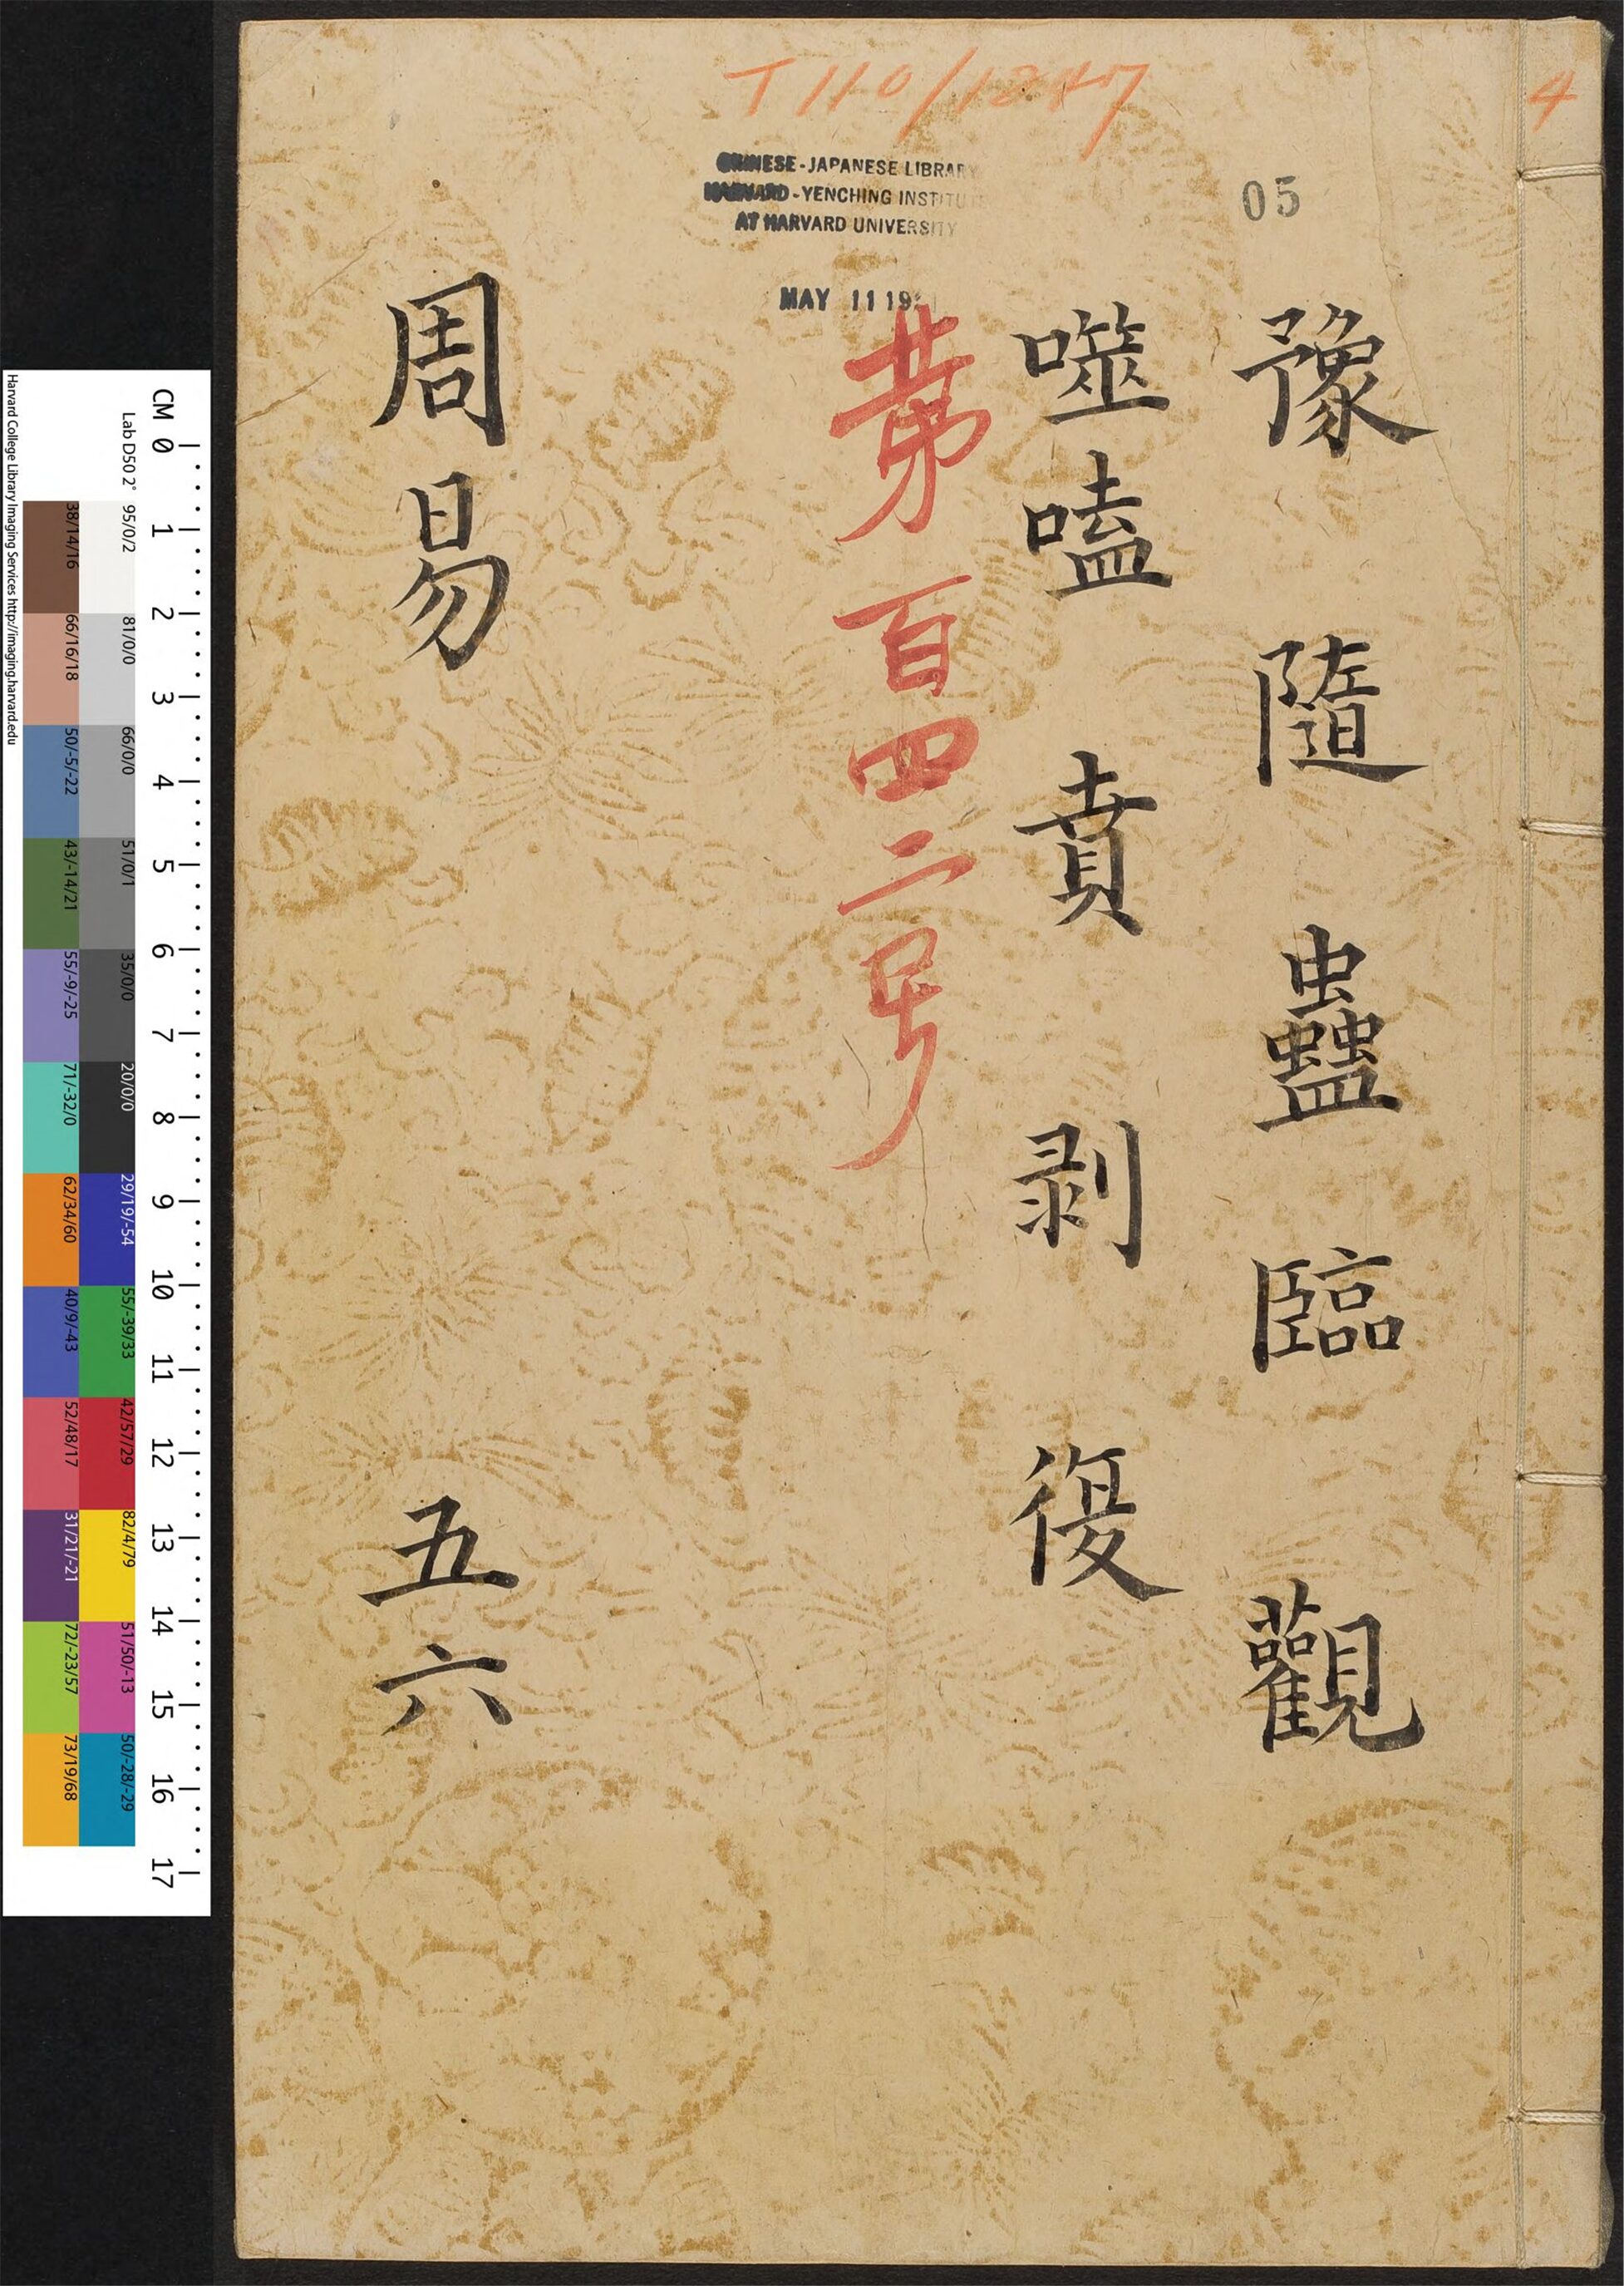 T 110/1847
4
CHINESE-JAPANESE LIBRARY
HARVARD-YENCHING INSTITUTE
AT HARVARD UNIVERSITY
MAY 11 19
05
豫 隨 蠱 臨 觀
噬嗑 賁 剥 復
第百四二号
周易 五六
CM 0 1 2 3 4 5 6 7 8 9 10 11 12 13 14 15 16 17
Lab D50 2° 95/0/2 81/0/0 66/0/0 51/0/1 35/0/0 20/0/0 29/19/-54 55/-39/33 42/57/29 82/4/79 51/50/-13 50/-28/-29
38/14/16 66/16/18 50/-5/-22 43/-14/21 55/-9/-25 71/-32/0 62/34/60 40/9/-43 52/48/17 31/21/-21 72/-23/57 73/19/68
Harvard College Library Imaging Services http://imaging.harvard.edu